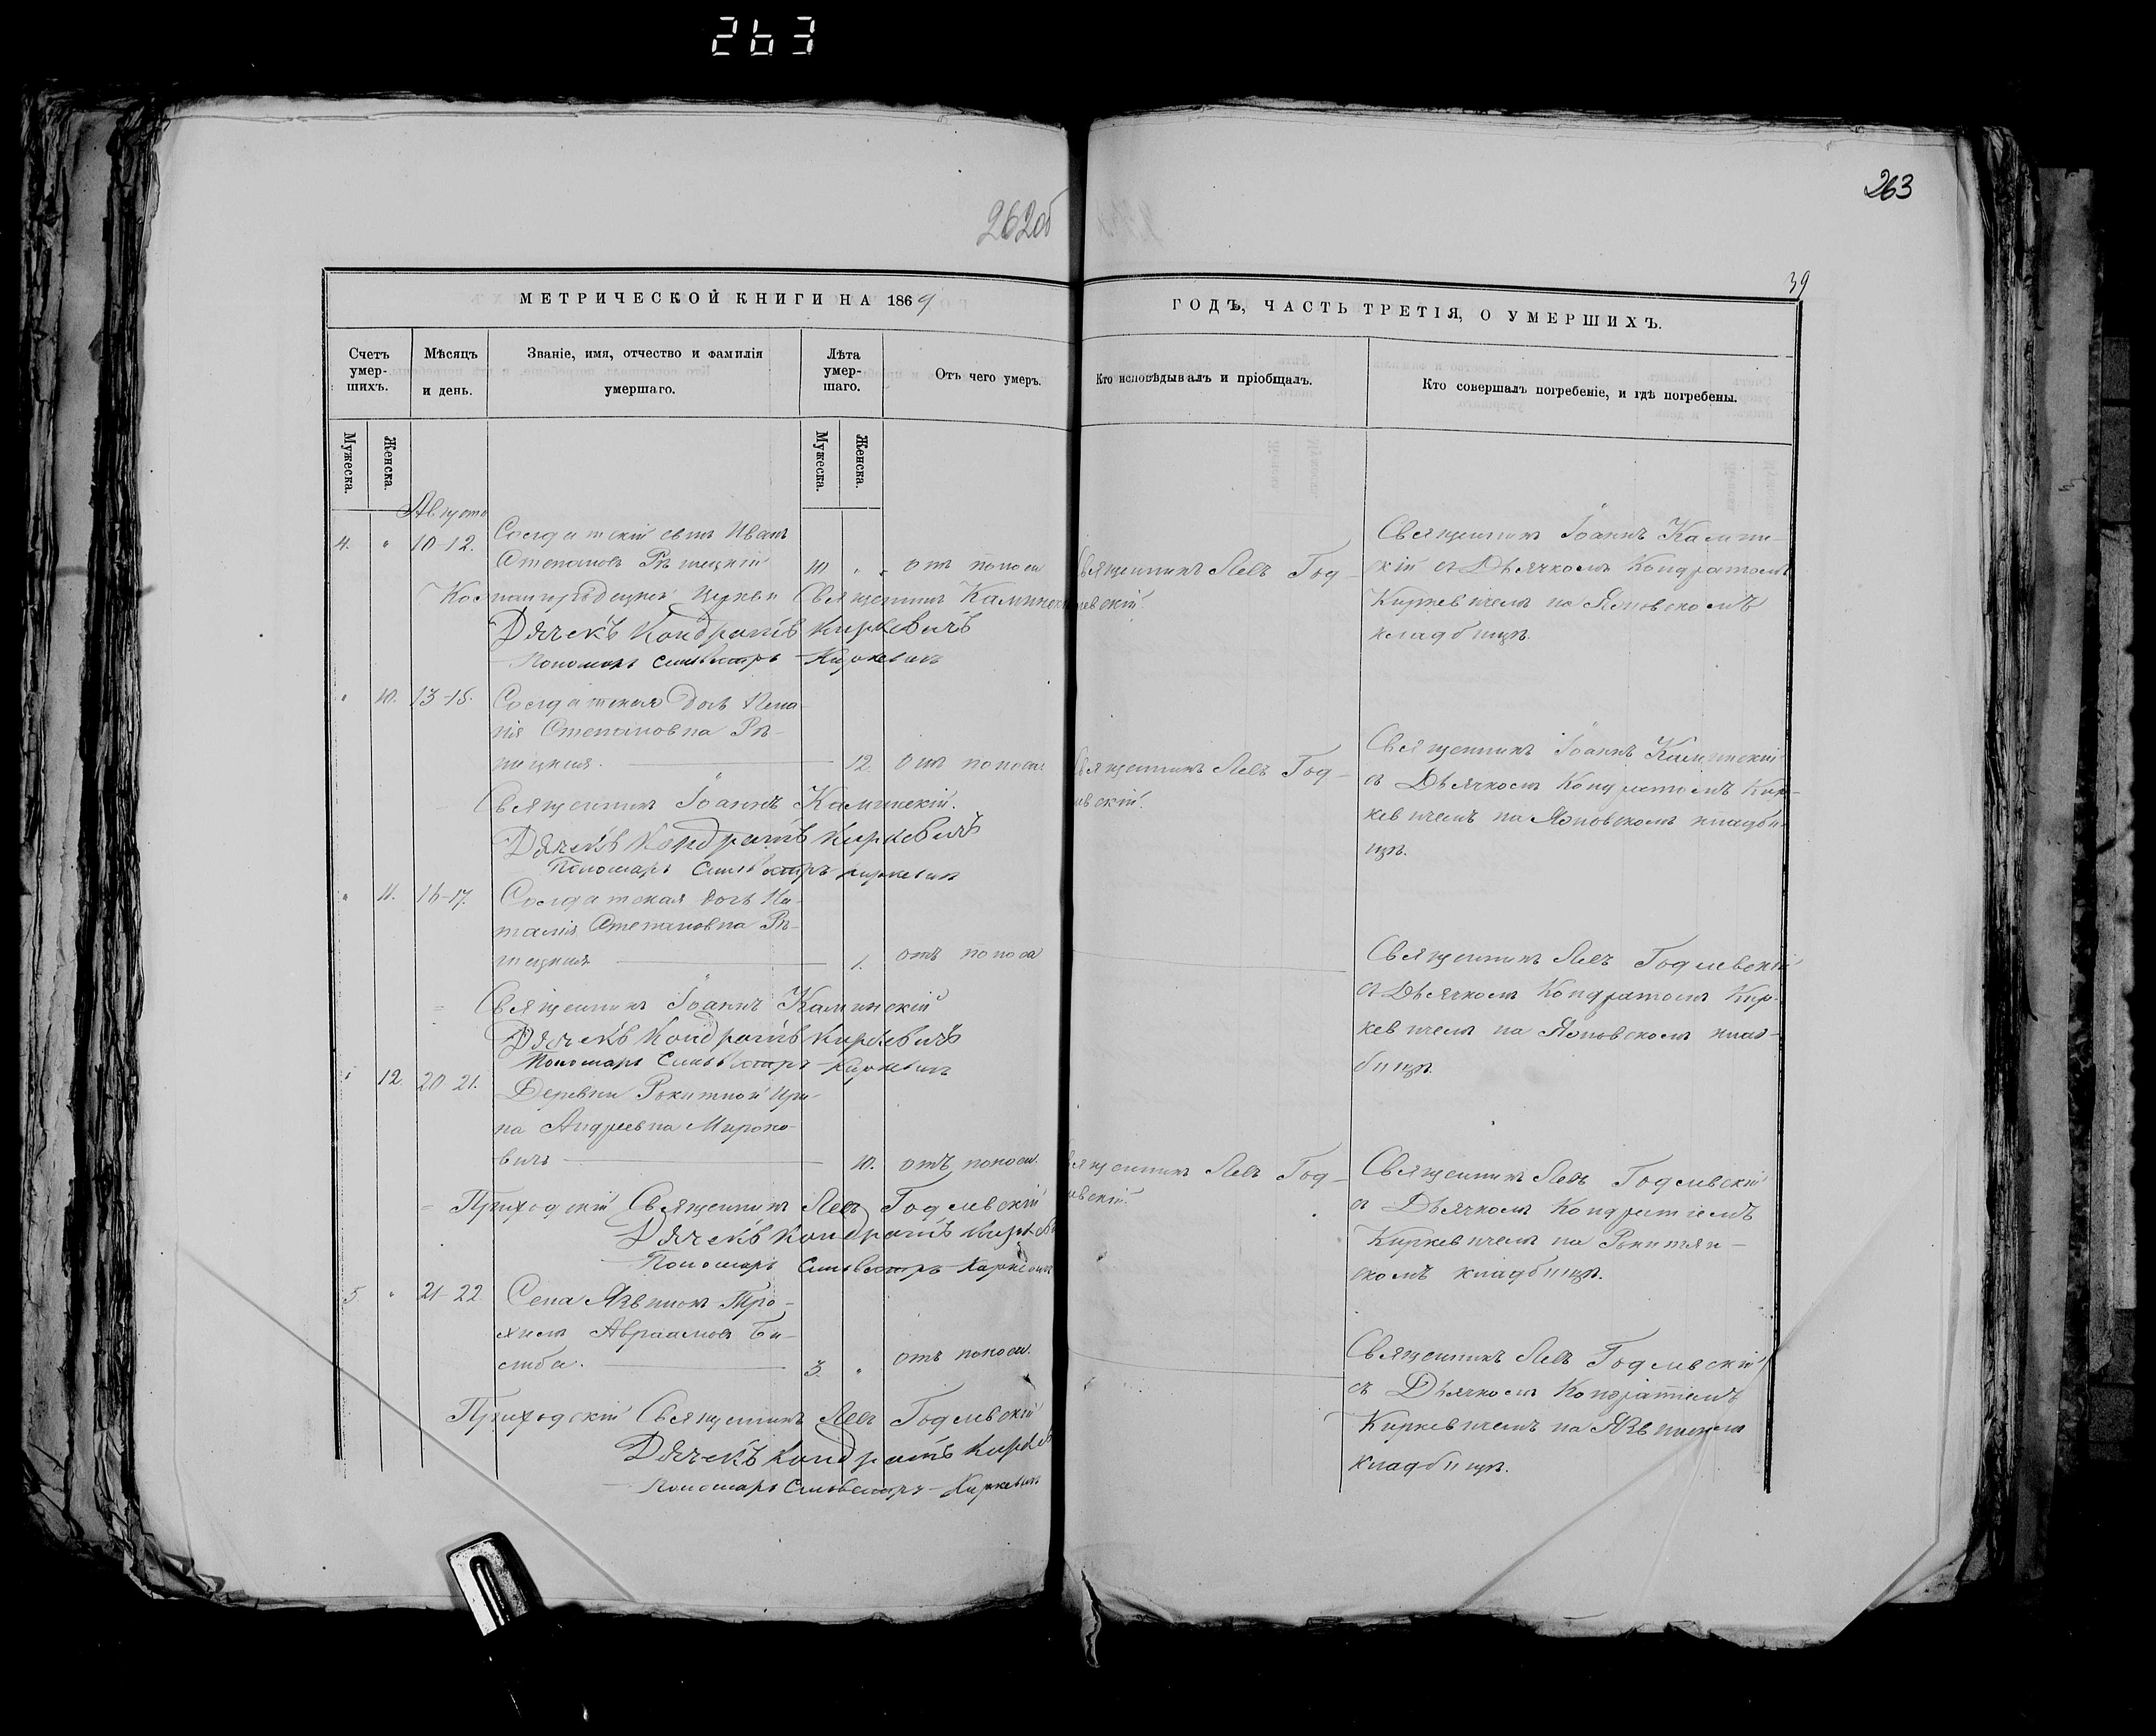 263
263
262об
39
МЕТРИЧЕСКОЙ КНИГИ НА 1869
ГОДЪ, ЧАСТЬ ТРЕТІЯ, О УМЕРШИХЪ.
Счетъ умер-шихъ.
Мѣсяцъ и день.
Званіе, имя, отчество и фамилія умершаго.
Лѣта умер-шаго.
Отъ чего умеръ.
Кто исповѣдывалъ и пріобщалъ.
Кто совершалъ погребеніе, и гдѣ погребены.
Мужеска.
Женска.
Мужеска.
Женска.
Августа
4. " 10-12.
Солдатскій сынъ Иванъ
Степановъ Рѣчицкій
10. " отъ поноса
Священникъ Левъ Год-
левскій.
Священникъ Іоаннъ Камин-
скій съ Дьячкомъ Кондратомъ
Киркевичемъ на Яновскомъ
кладбищѣ.
Церкви Священникъ Каминскій
Дячекъ Кондратъ Киркевичъ
Пономарь Сильвестръ Киркевичъ
" 10. 13-15.
Солдатская дочь
Степановна Рѣ-
чицкая. 12. отъ поноса.
Священникъ Левъ Год-
левскій.
Священникъ Іоаннъ Каминскій
съ Дьячкомъ Кондратомъ Кир-
кевичемъ на Яновскомъ кладби-
щѣ.
Священникъ Іоаннъ Каминскій.
Дячекъ Кондратъ Киркевичъ
Пономарь Сильвестръ Киркевичъ
" 11. 16-17.
Солдатская дочь На-
талія Степановна Рѣ-
чицкая 1. отъ поноса
Священникъ Левъ Годлевскій
съ Дьячкомъ Кондратомъ Кир-
кевичемъ на Яновскомъ клад-
бищѣ.
Священникъ Іоаннъ Каминскій
Дячекъ Кондратъ Киркевичъ
Пономарь Сильвестръ Киркевичъ
" 12. 20-21.
Деревни Рокитной Ири-
на Андреевна Мироно-
вичъ 10. отъ поноса.
Священникъ Левъ Год-
левскій.
Священникъ Левъ Годлевскій
съ Дьячкомъ Кондратіемъ
Киркевичемъ на Рокитян-
скомъ кладбищѣ.
Приходскій Священникъ Левъ Годлевскій
Дячекъ Кондратъ Киркеви
Пономарь Сильвестръ Киркевичъ
5. " 21-22.
Села Язвинокъ Тро-
химъ Авраамовъ
3. " отъ поноса.
Священникъ Левъ Годлевскій
съ Дьячкомъ Кондратіемъ
Киркевичемъ на
кладбищѣ.
Приходскій Священникъ Левъ Годлевскій
Дячекъ Кондратъ Киркев
Пономарь Сильвестръ Киркевичъ